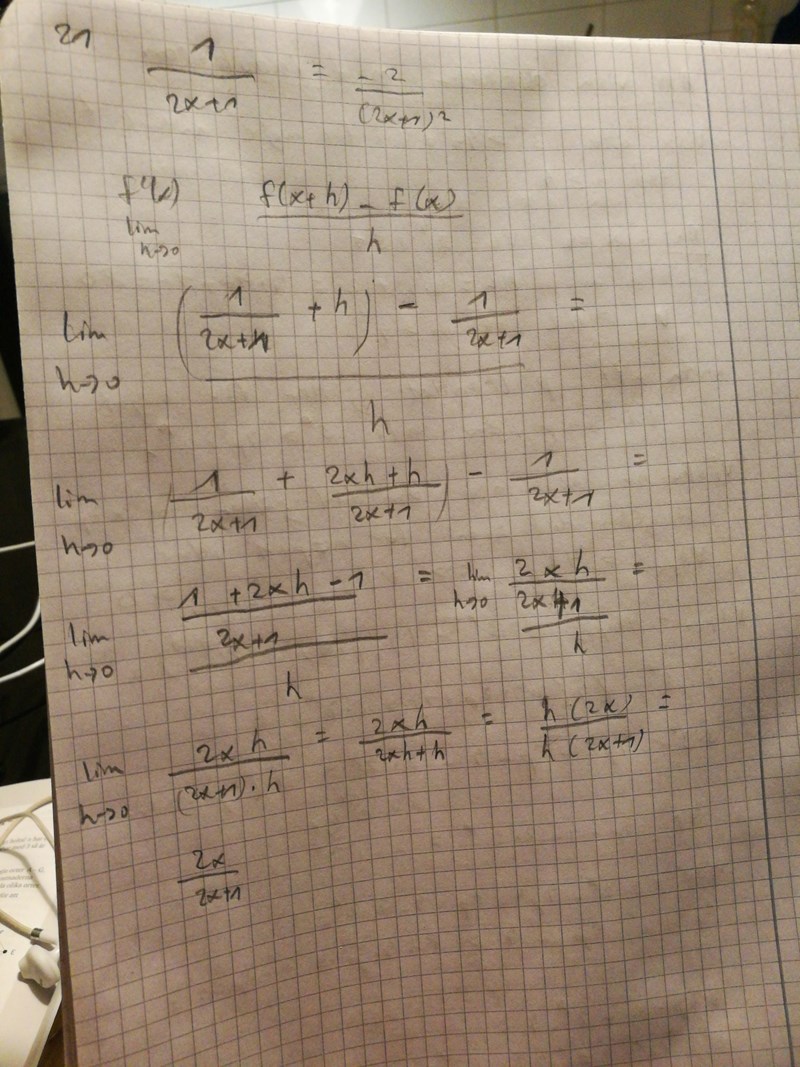 21 1/(2x+1) = -2/(2x+1)²
f'(x) (f(x+h) - f(x))/h
lim h→0
lim h→0 ((1/(2x+1) + h) - 1/(2x+1))/h =
lim h→0 (1/(2x+1) + (2xh+h)/(2x+1)) - 1/(2x+1) =
lim h→0 ((1+2xh-1)/(2x+1))/h = lim h→0 (2xh/(2x+1))/h =
lim h→0 2xh/((2x+1)·h) = 2xh/(2xh+h) = h(2x)/(h(2x+1)) =
2x/(2x+1)